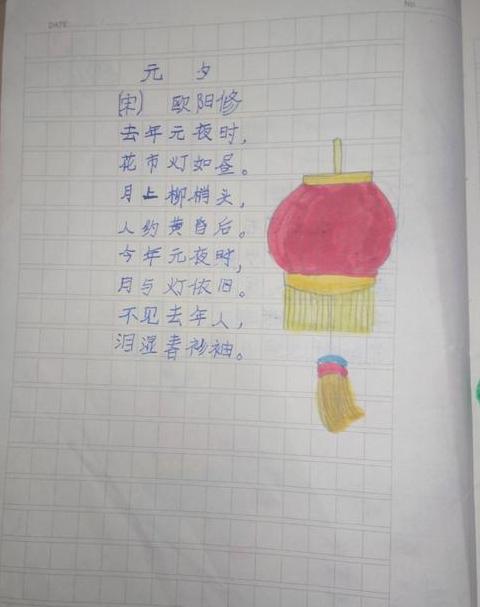 DATE
No
元 夕
(宋) 欧阳修
去年元夜时，
花市灯如昼。
月上柳梢头，
人约黄昏后。
今年元夜时，
月与灯依旧。
不见去年人，
泪湿春衫袖。